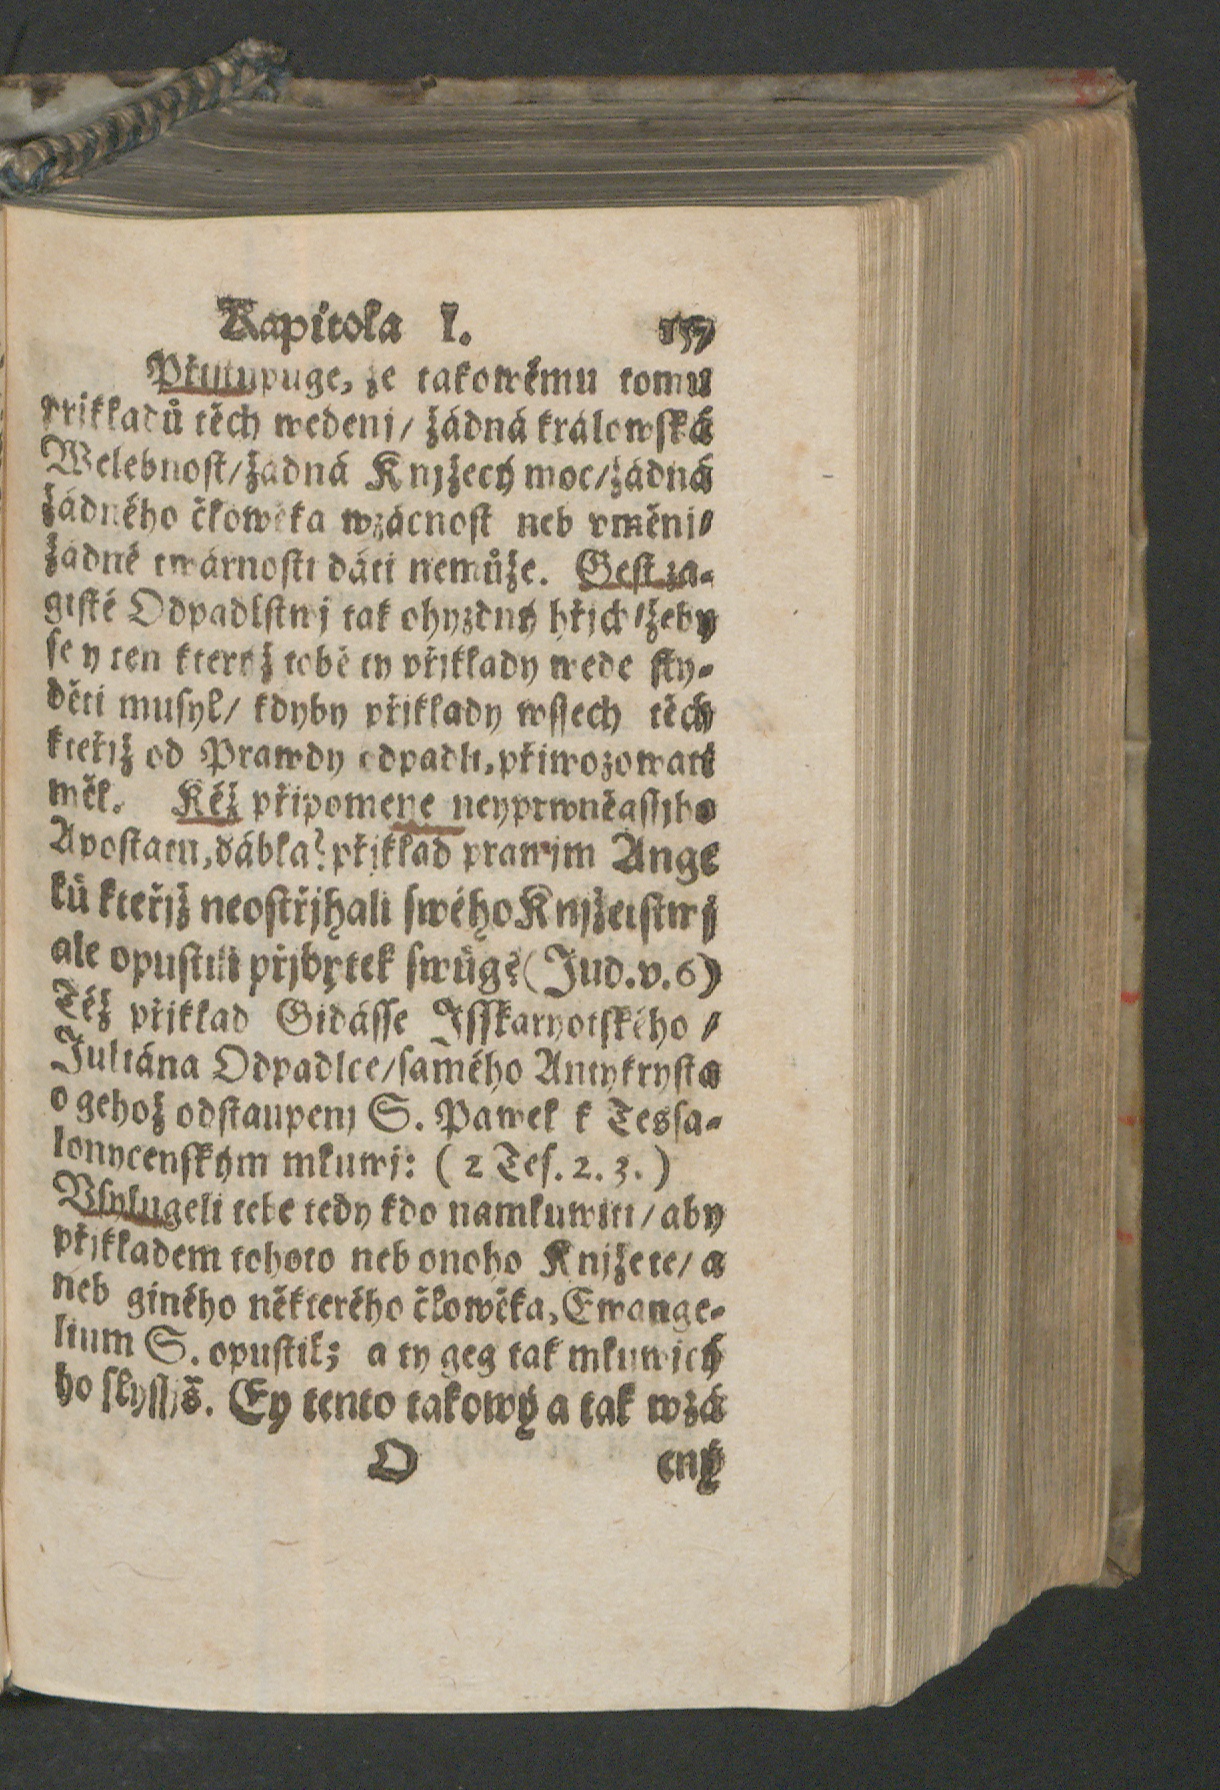 Kapitola I. 157
Přistupuge, že takowému tomu
přikladů těch wedenj/ žádná králowská
Welebnost/žádná Knjžecý moc/žádná
žádného čłowěka wzácnost neb vměnj/
žádné twárnosti dáti nemůže. Gest za-
gisté Odpadlstwj tak ohyzdný hřjch/žeby
se y ten kterýž tobě ty přjklady wede sty-
děti musyl/ kdyby přjklady wssech těch
kteřjž od Prawdy odpadli, přiwozowati
měl. Kéž připomene neyprwněgssjho
Apostatu, ďábla? přjklad prawjm Ange
lů kteřjž neostřjhali swého Knjžetstwj
ale opustili přjbytek swůg? (Jud. v. 6)
Též přjklad Gidásse Isskaryotského /
Juliána Odpadlce/samého Antykrysta
o gehož odstaupenj S. Pawel k Tessa-
lonycenským mluwj: ( 2 Tes. 2. 3. )
Vsylugeli tebe tedy kdo namluwiti/ aby
přjkladem tohoto neb onoho Knjžete/ a
neb giného některého čłowěka, Ewange-
lium S. opustil; a ty geg tak mluwjcý
ho slyssýš. Ey tento takowý a tak wzá
O cný